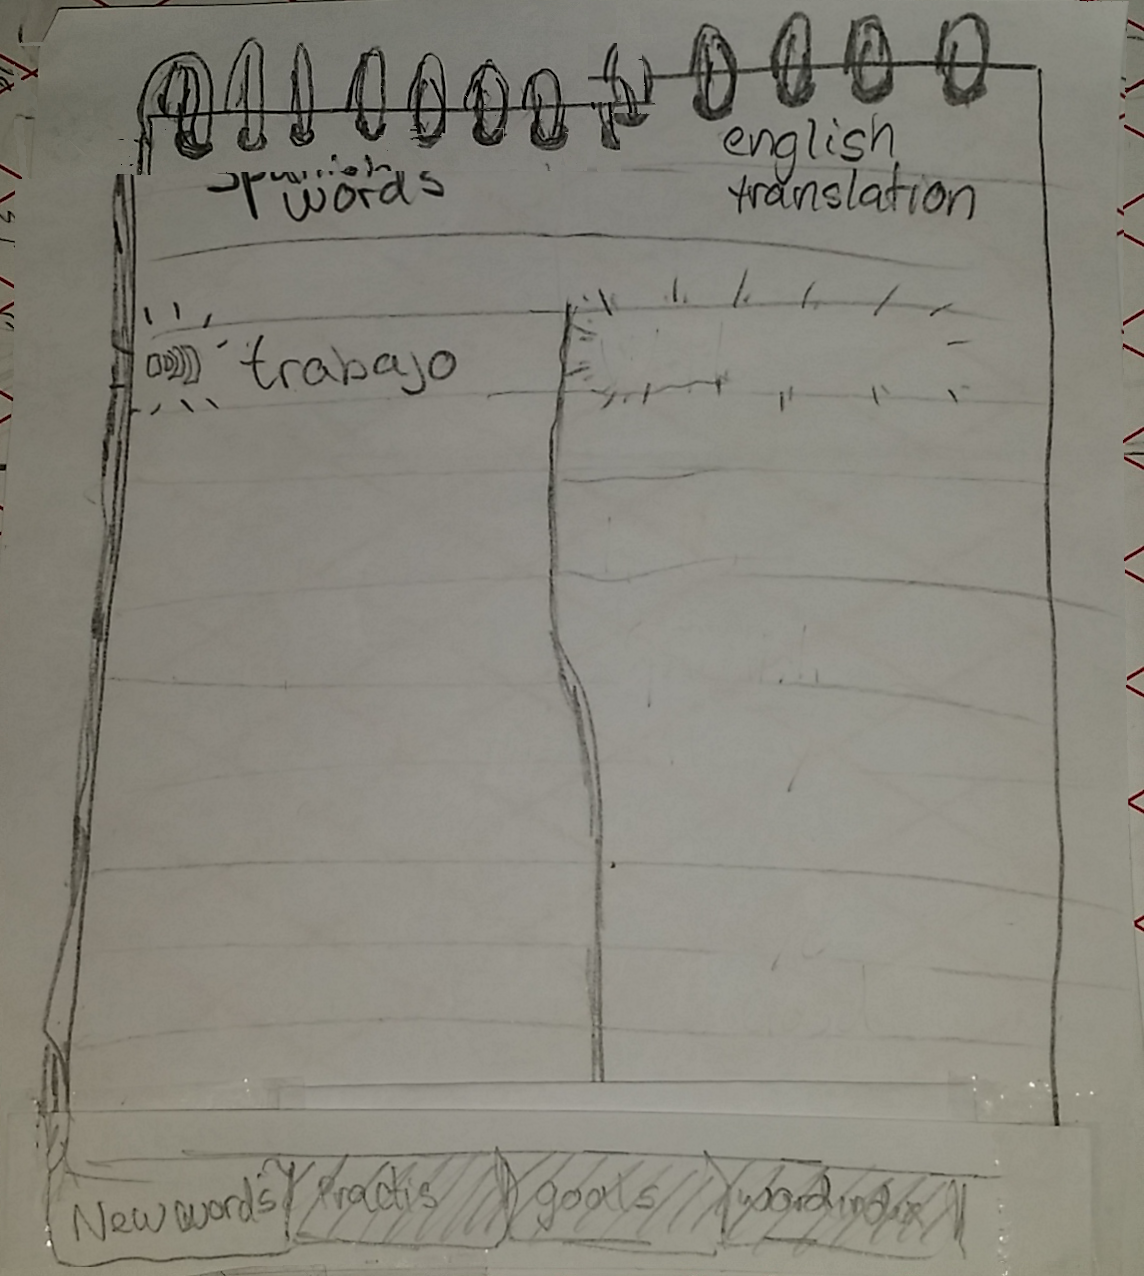 Spanish
words
english
translation
trabajo
New words
Practis
goals
word index